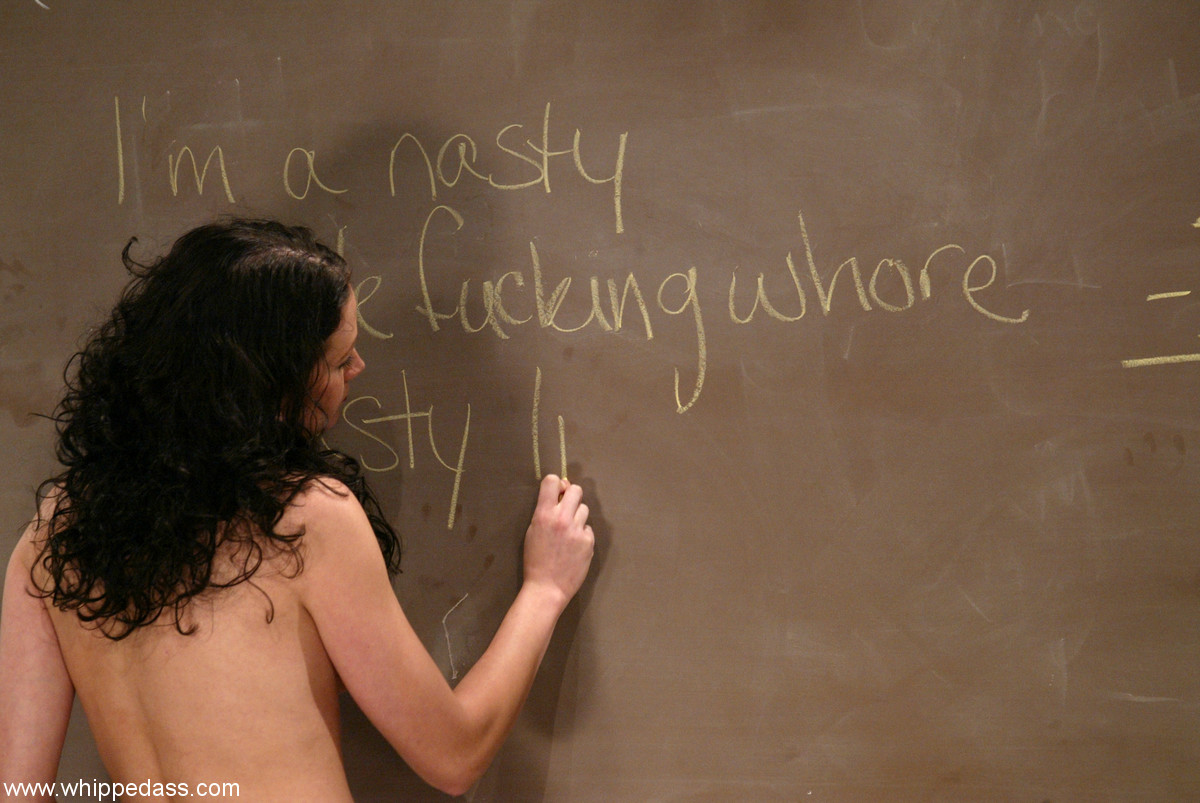 I'm a nasty
fucking whore
www.whippedass.com